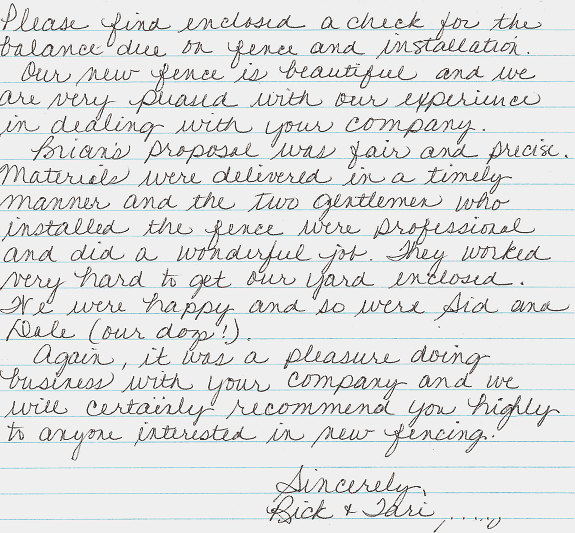 Please find enclosed a check for the
balance due on fence and installation.
Our new fence is beautiful and we
are very pleased with our experience
in dealing with your company.
Brian's proposal was fair and precise.
Materials were delivered in a timely
manner and the two gentlemen who
installed the fence were professional
and did a wonderful job. They worked
very hard to get our yard enclosed.
We were happy and so were Sid and
Dale (our dogs!).
Again, it was a pleasure doing
business with your company and we
will certainly recommend you highly
to anyone interested in new fencing.
Sincerely,
Rick & Tari